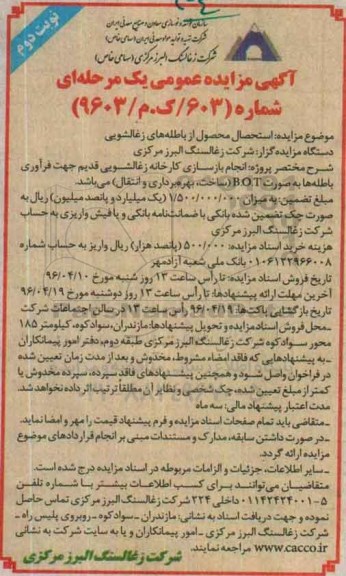 نوبت دوم
سازمان توسعه و نوسازی معادن و صنایع معدنی ایران
شرکت تهیه و تولید مواد معدنی ایران (سهامی خاص)
شرکت زغالسنگ البرز مرکزی (سهامی خاص)
آگهی مزایده عمومی یک مرحله‌ای
شماره (۶۰۳/ک.م/۹۶۰۳)
موضوع مزایده: استحصال محصول از باطله‌های زغالشویی
دستگاه مزایده گزار: شرکت زغالسنگ البرز مرکزی
شرح مختصر پروژه: انجام بازسازی کارخانه زغالشویی قدیم جهت فرآوری
باطله‌ها به صورت BOT (ساخت، بهره‌برداری و انتقال) می‌باشد.
مبلغ تضمین: به میزان ۱/۵۰۰/۰۰۰/۰۰۰ (یک میلیارد و پانصد میلیون) ریال به
صورت چک تضمین شده بانکی یا ضمانتنامه بانکی و یا فیش واریزی به حساب
شرکت زغالسنگ البرز مرکزی
هزینه خرید اسناد مزایده: ۵۰۰/۰۰۰ (پانصد هزار) ریال واریز به حساب شماره
۰۱۰۶۱۳۲۹۶۶۰۰۸ بانک ملی شعبه آزادمهر
تاریخ فروش اسناد مزایده: تا رأس ساعت ۱۳ روز شنبه مورخ ۹۶/۰۴/۱۰
آخرین مهلت ارائه پیشنهادها: تا رأس ساعت ۱۳ روز دوشنبه مورخ ۹۶/۰۴/۱۹
تاریخ بازگشایی پاکت‌ها: ۹۶/۰۴/۱۹ رأس ساعت ۱۳ در سالن اجتماعات شرکت
ـ محل فروش اسناد مزایده و تحویل پیشنهادها: مازندران، سوادکوه، کیلومتر ۱۸۵
محور سوادکوه شرکت زغالسنگ البرز مرکزی طبقه دوم، دفتر امور پیمانکاران
ـ به پیشنهادهایی که فاقد امضاء، مشروط، مخدوش و بعد از مدت زمان تعیین شده
در فراخوان واصل شود و همچنین پیشنهادهای فاقد سپرده، سپرده مخدوش یا
کمتر از مبلغ تعیین شده، چک شخصی و نظایر آن مطلقاً ترتیب اثر داده نخواهد شد.
مدت اعتبار پیشنهاد مالی: سه ماه
ـ متقاضی باید تمام صفحات اسناد مزایده و فرم پیشنهاد قیمت را مهر و امضا نماید.
ـ در صورت داشتن سابقه، مدارک و مستندات مبنی بر انجام قراردادهای موضوع
مزایده ارائه گردد.
ـ سایر اطلاعات، جزئیات و الزامات مربوطه در اسناد مزایده درج شده است.
متقاضیان می‌توانند برای کسب اطلاعات بیشتر با شماره تلفن
۰۱۱۴۲۴۲۴۰۰۱-۵ داخلی ۲۲۴ شرکت زغالسنگ البرز مرکزی تماس حاصل
نموده و جهت دریافت اسناد به نشانی: مازندران ـ سوادکوه ـ روبروی پلیس راه ـ
شرکت زغالسنگ البرز مرکزی ـ امور پیمانکاران و یا به سایت شرکت به نشانی
www.cacco.ir مراجعه نمایند.
شرکت زغالسنگ البرز مرکزی